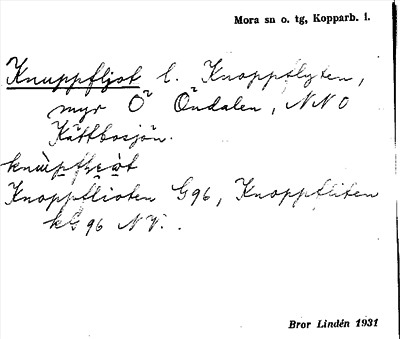 Mora sn o. tg, Kopparb. l.
Knuppfljot l. Knoppflyten,
myr Ö Öndalen, NNO
Kättbosjön.
Knoppflioten G96, Knoppfliten
kG96 NV.
Bror Lindén 1931